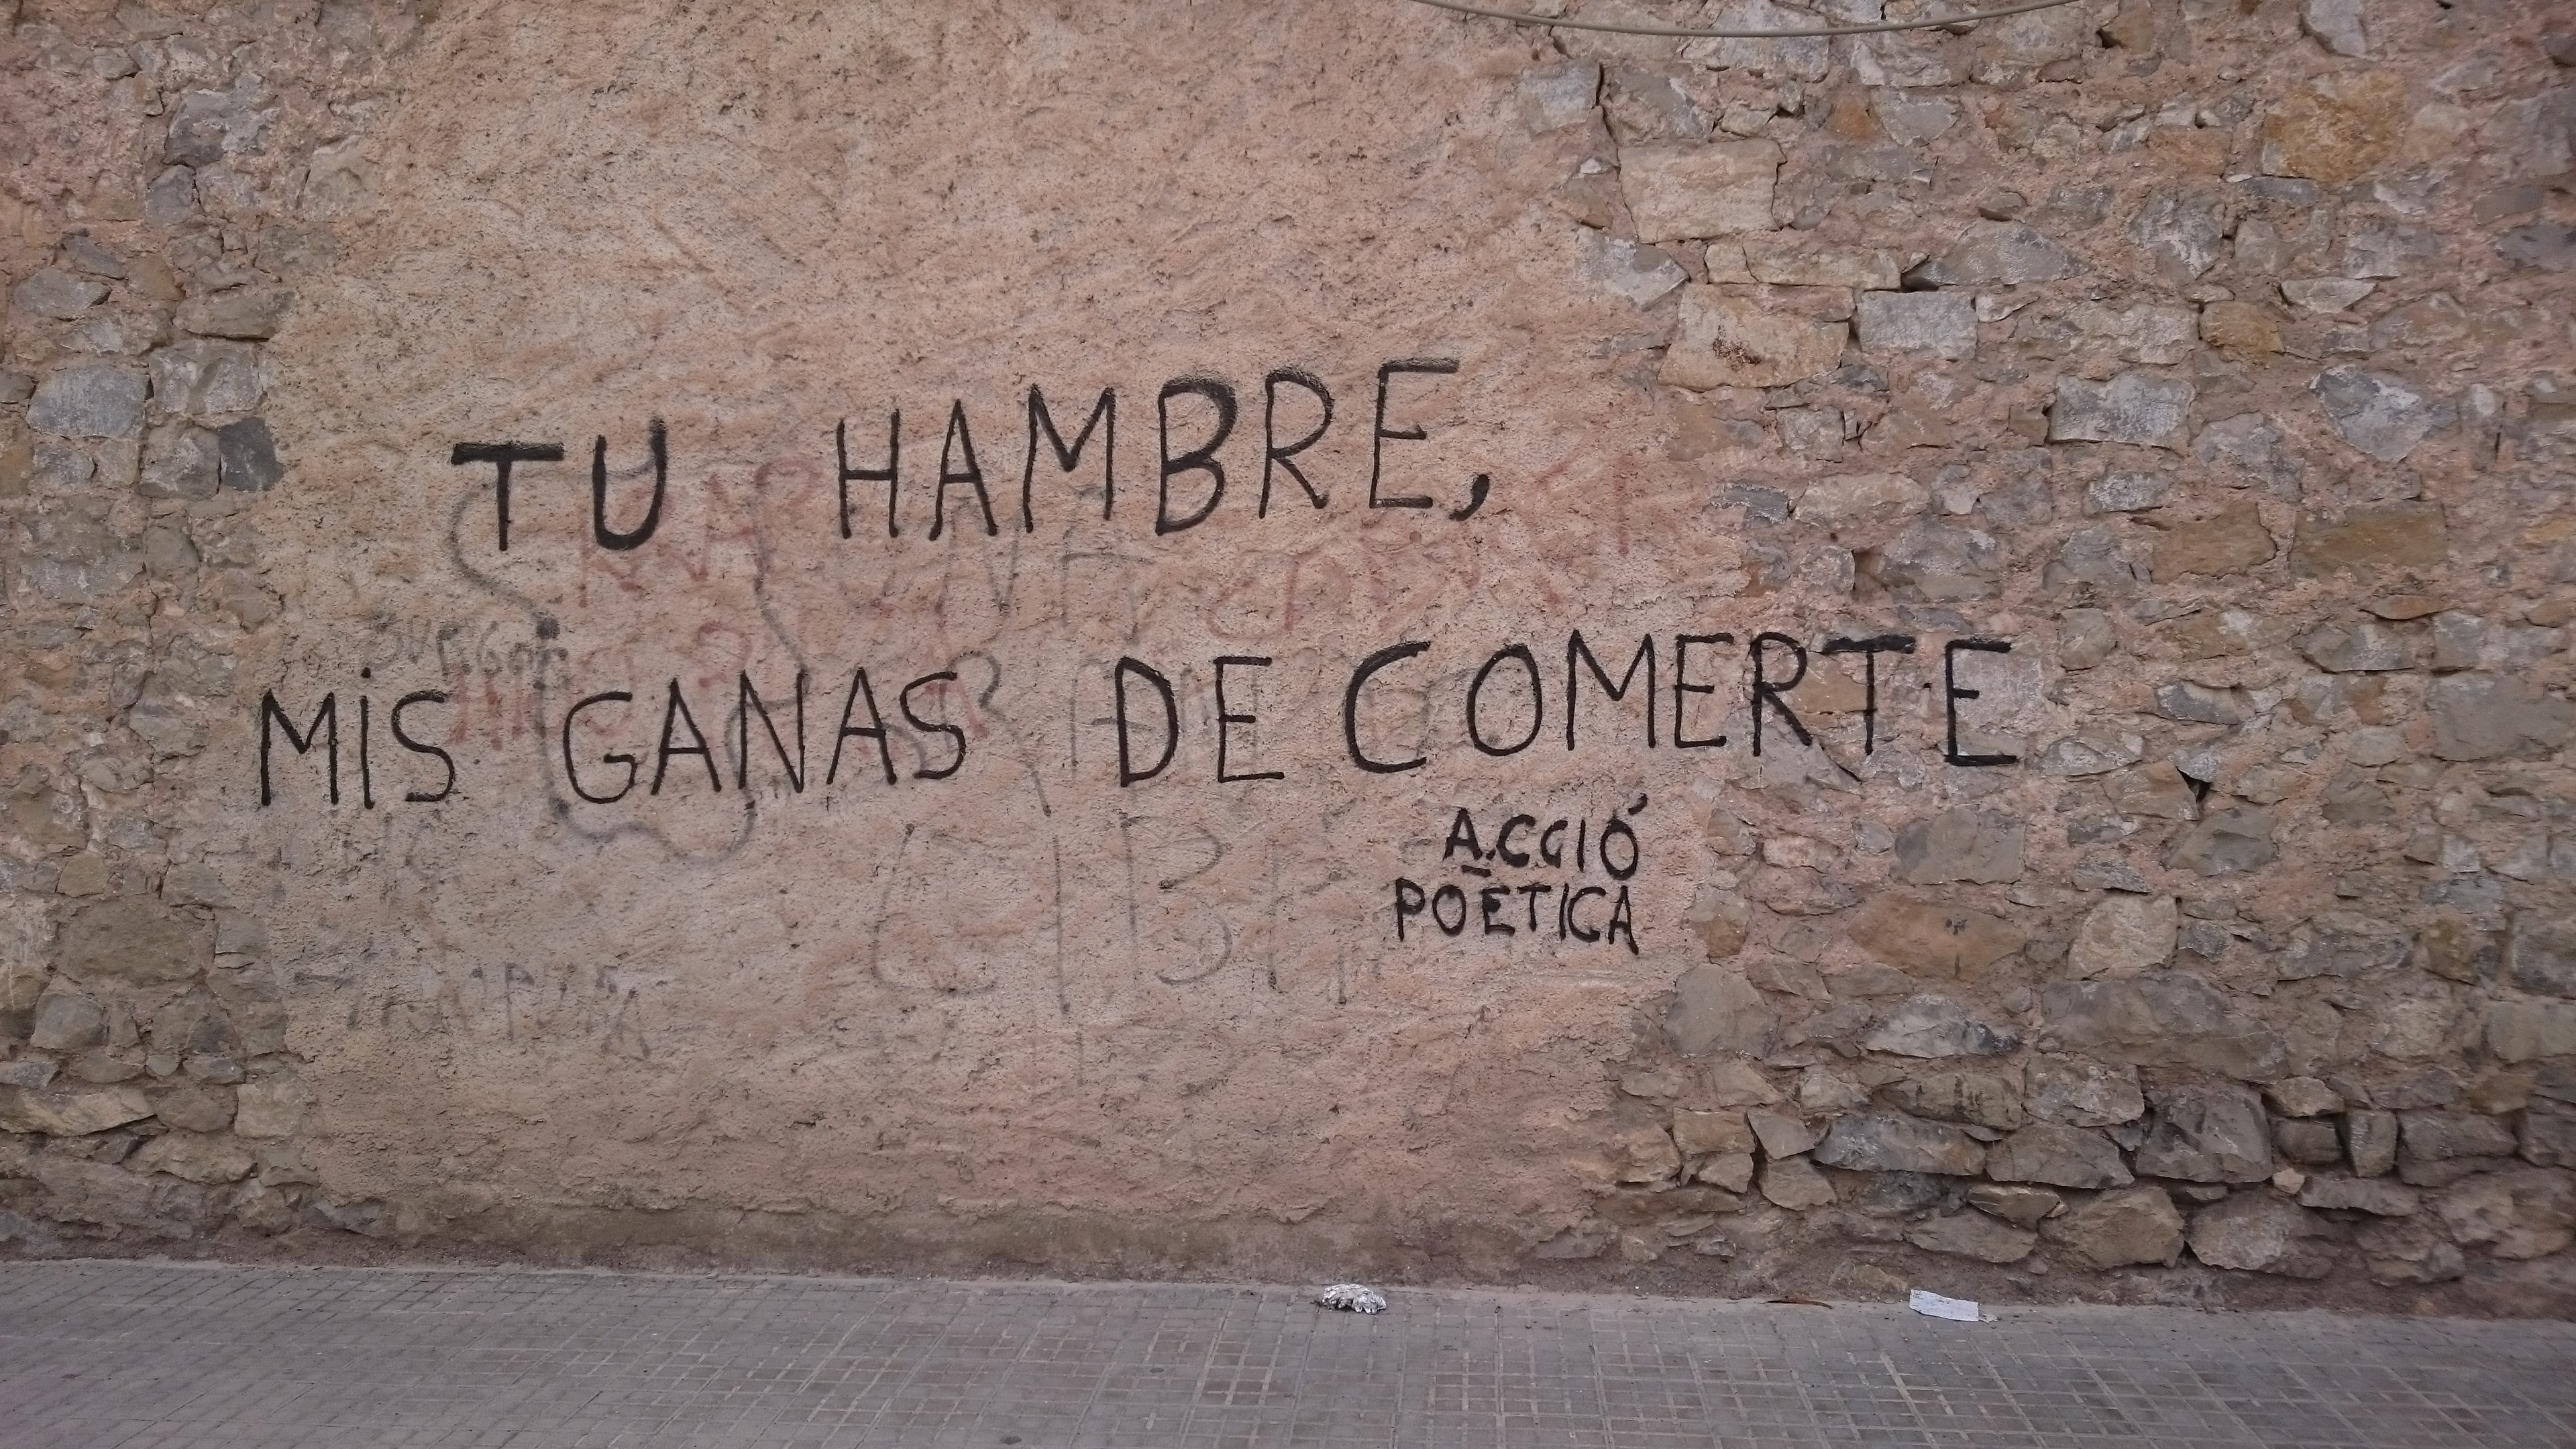 TU HAMBRE,
MIS GANAS DE COMERTE
ACCIÓ
POÈTICA